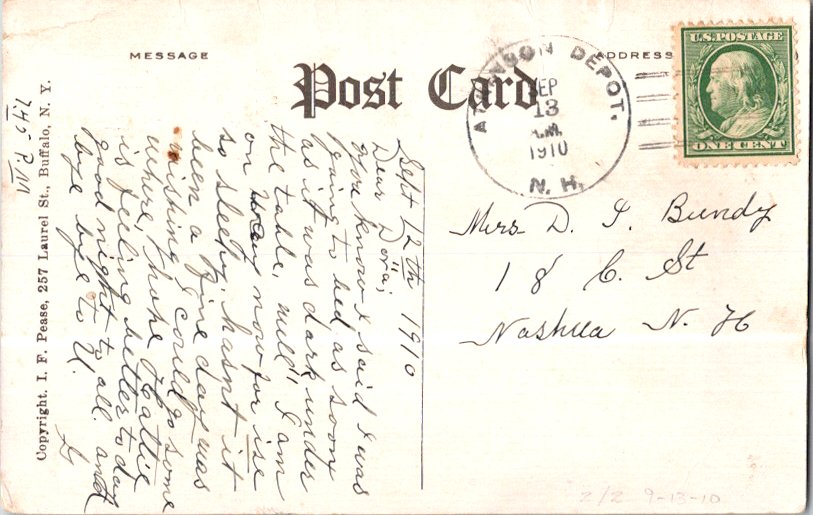 MESSAGE
ADDRESS
Post Card
ATKINSON DEPOT.
SEP
13
A.M.
1910
N. H.
U.S. POSTAGE
ONE CENT
Sept 12th 1910
Dear Dora;
you know I said I was
going to bed as soon
as it was dark under
the table, well" I am
on way now for ise
so sleepy, hasn't it
been a fine day was
wishing I could go some
where, I hope Hattie
is feeling better to day
good night to all. and
bye bye to U.
G
745 P M
Mrs. D. I. Bundy
18 C. St
Nashua N. H
Copyright. I. F. Pease, 257 Laurel St., Buffalo, N. Y.
2/2 9-13-10